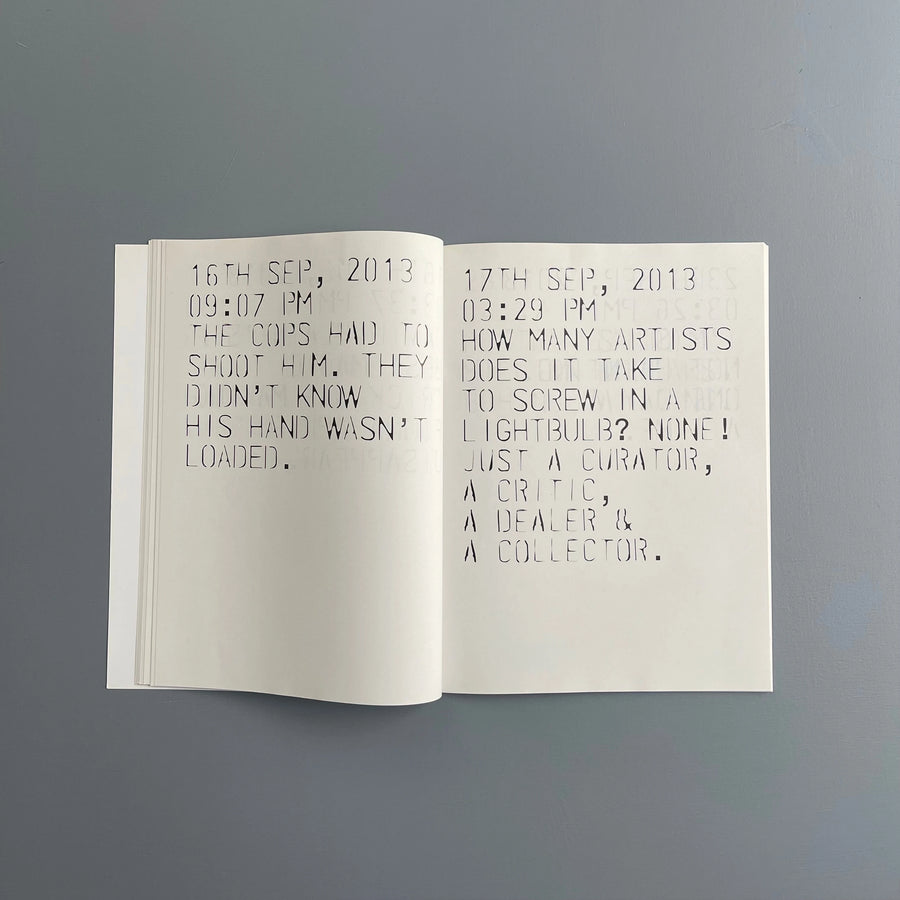 16TH SEP, 2013
09:07 PM
THE COPS HAD TO
SHOOT HIM. THEY
DIDN'T KNOW
HIS HAND WASN'T
LOADED.
17TH SEP, 2013
03:29 PM
HOW MANY ARTISTS
DOES IT TAKE
TO SCREW IN A
LIGHTBULB? NONE!
JUST A CURATOR,
A CRITIC,
A DEALER &
A COLLECTOR.